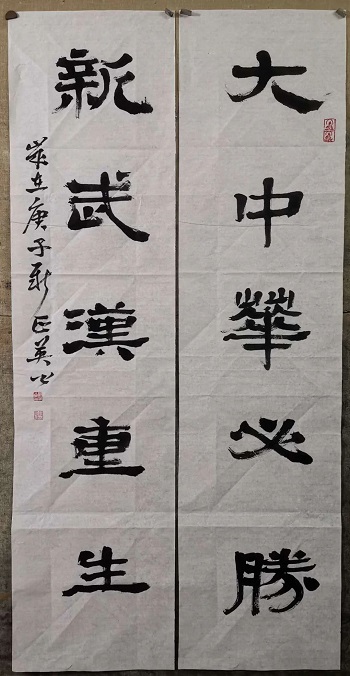 大中華必勝
新武漢重生
歲在庚子新正英书